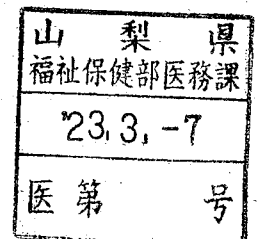 山梨県
福祉保健部医務課
'23.3.-7
医第 号